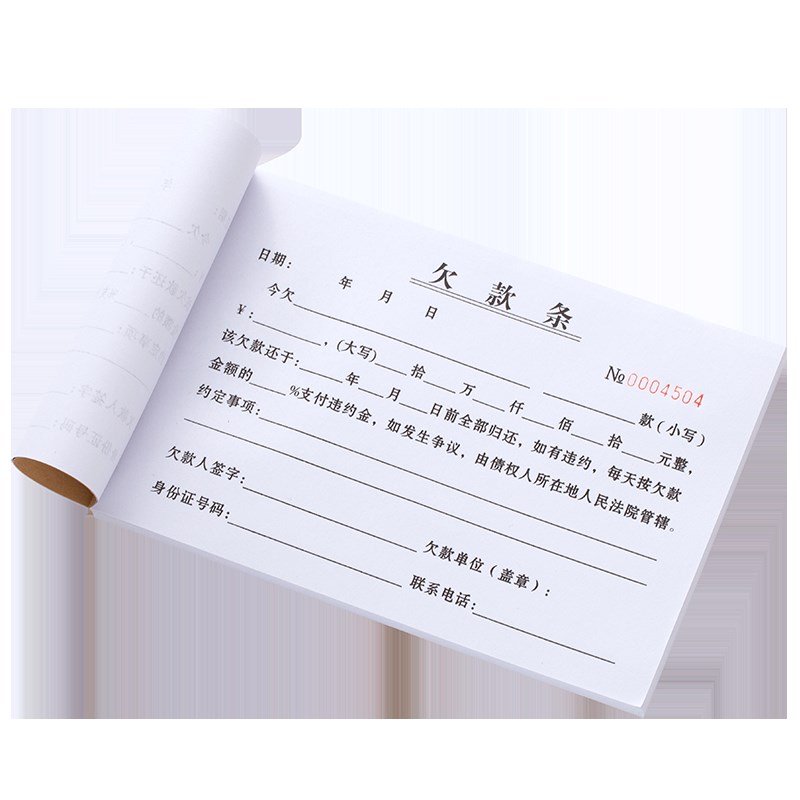 欠款条
日期： 年 月 日
№0004504
今欠________________ ________款(小写)
¥:______，(大写)___拾___万___仟___佰___拾___元整，
该欠款还于:____年___月___日前全部归还，如有违约，每天按欠款
金额的____%支付违约金，如发生争议，由债权人所在地人民法院管辖。
约定事项：
欠款人签字： 欠款单位(盖章)：
身份证号码： 联系电话：